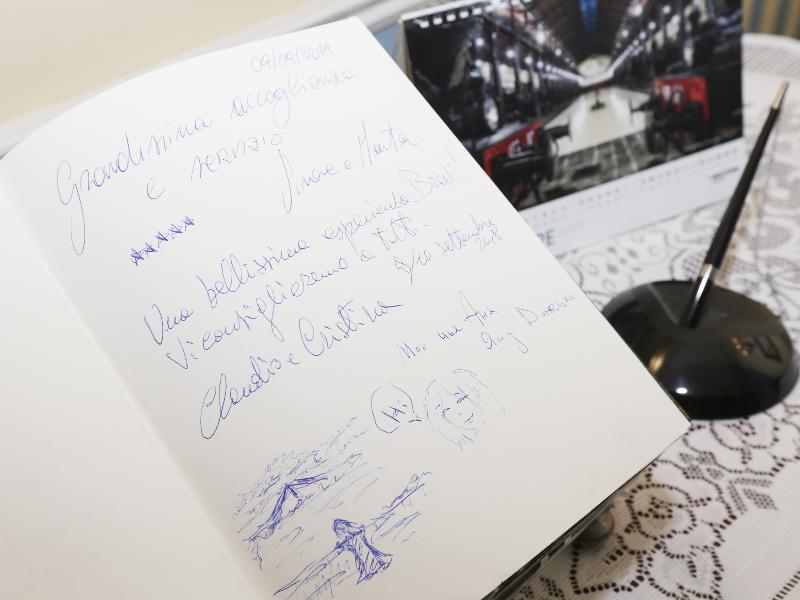 09/09/2018
Grandissima accoglienza
e servizio
e Marta
Una bellissima esperienza. Bravi!
Vi consigliaremo a tutti.
9/10 settembre
2018
Claudio e Cristina
Hi